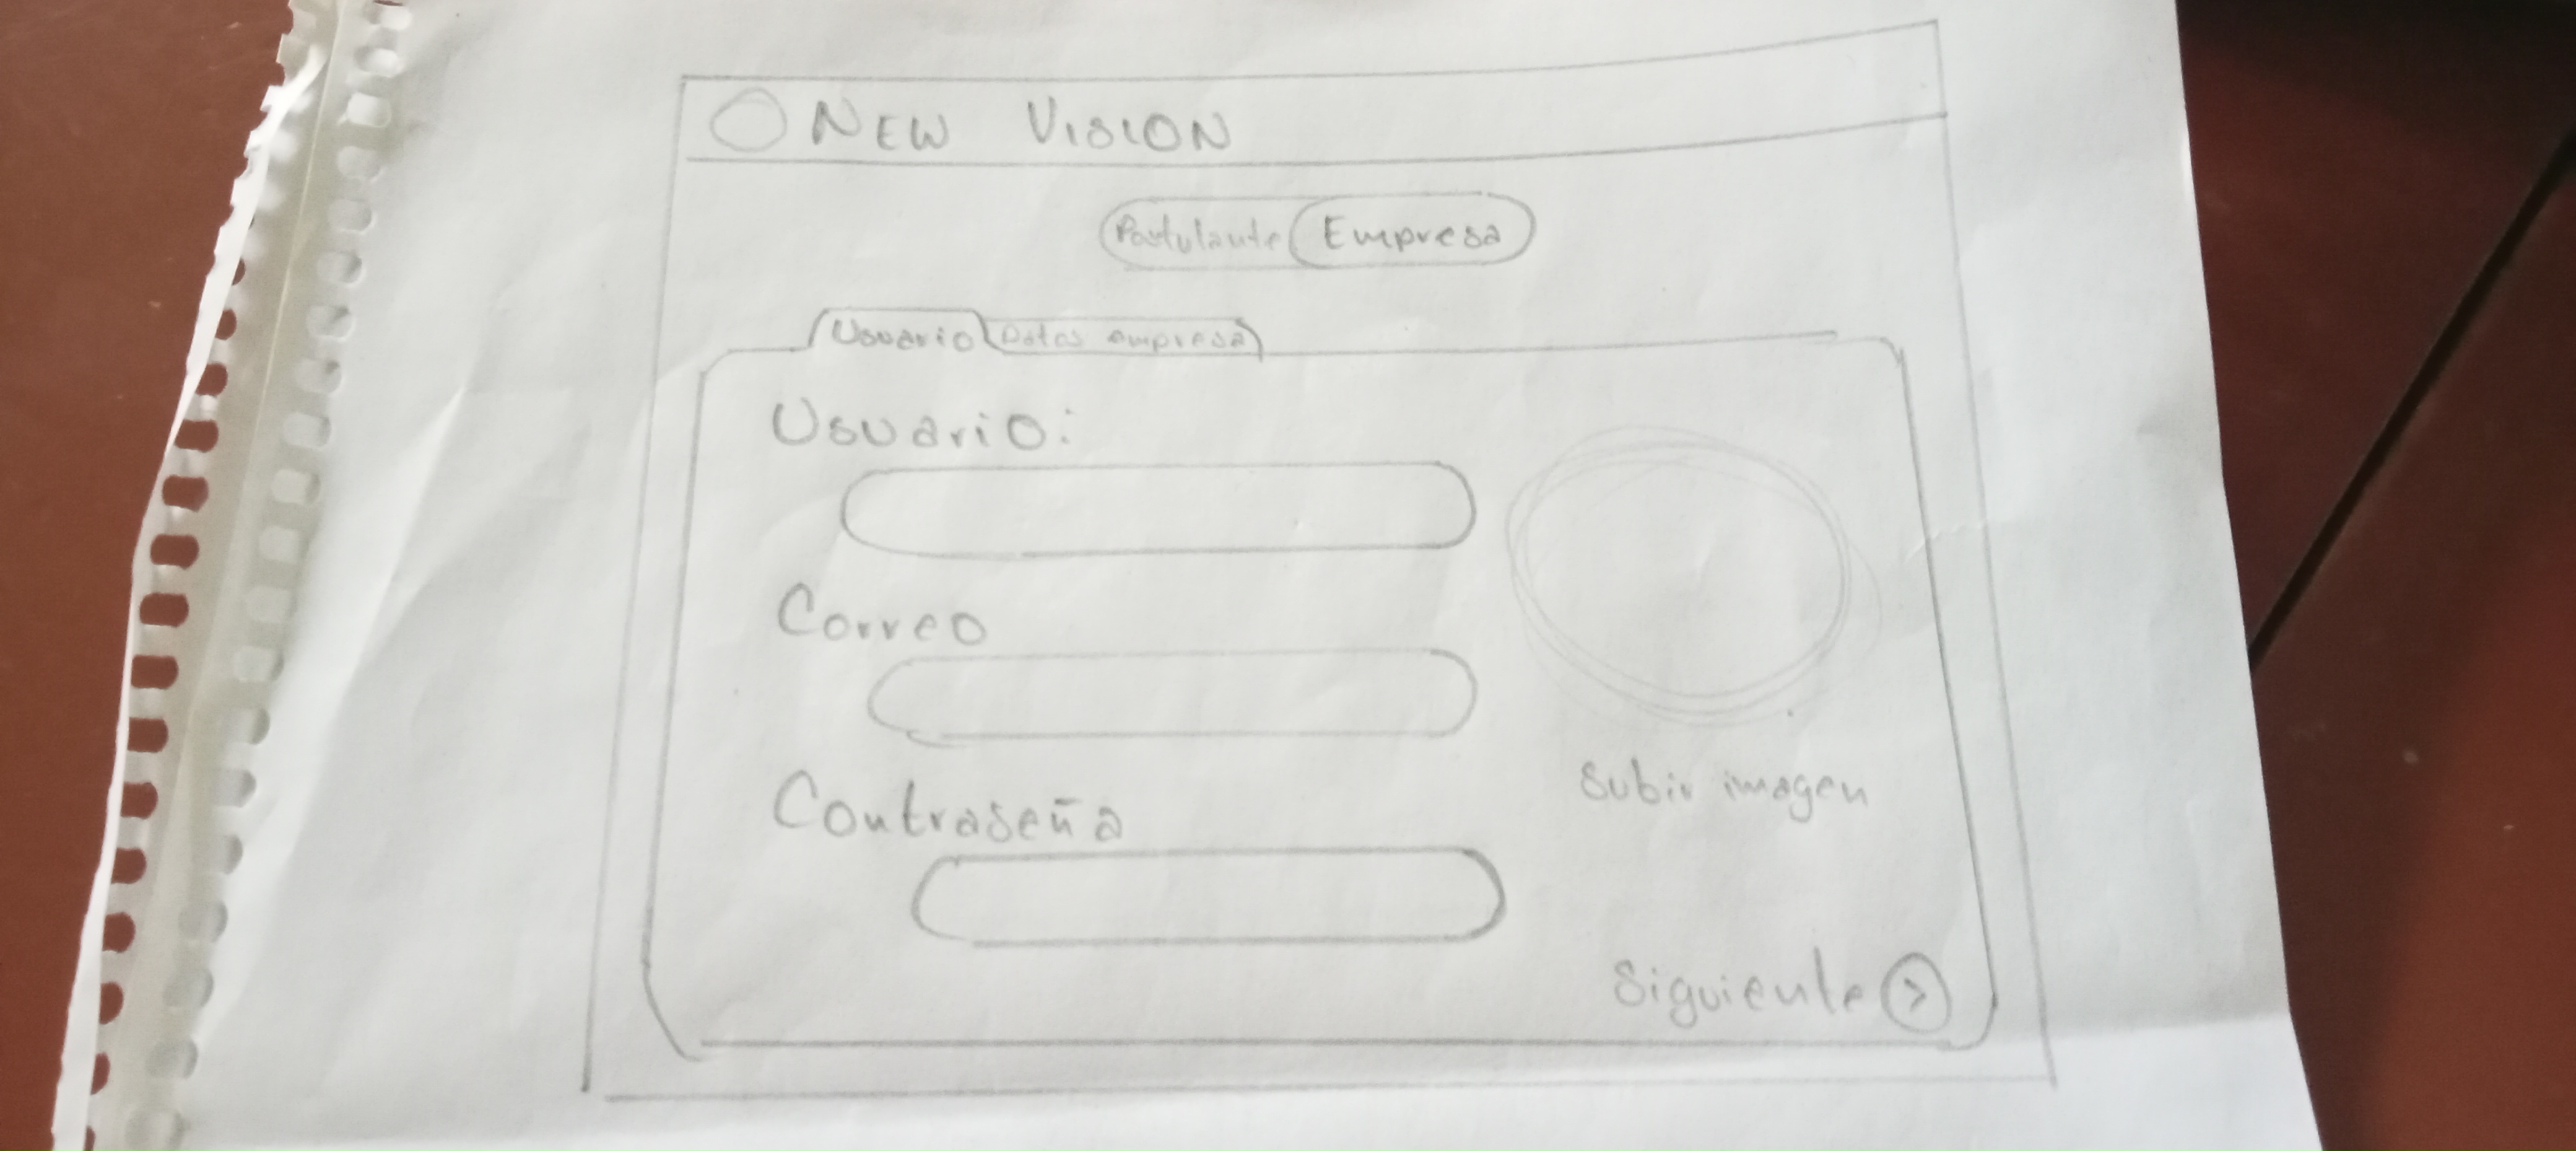 NEW VISION
Postulante Empresa
Usuario Datos empresa
Usuario:
Correo
Contraseña
Subir imagen
Siguiente >